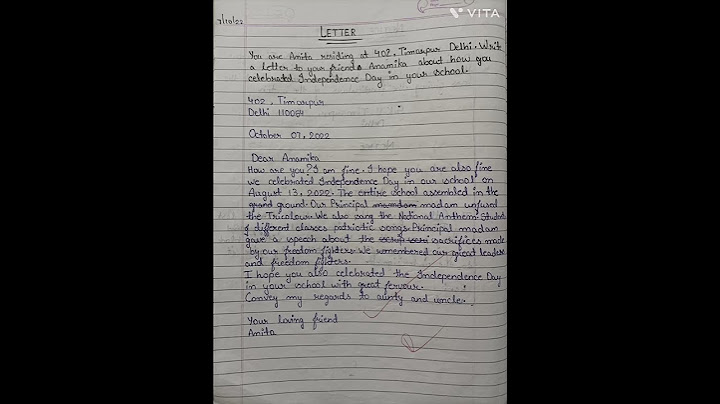 VITA
7/10/22
LETTER
You are Anita residing at 402, Timarpur Delhi. Write
a letter to your friend Anamika about how you
celebrated Independence Day in your school.
402, Timarpur
Delhi 110084
October 07, 2022
Dear Anamika
How are you? I am fine. I hope you are also fine
we celebrated Independence Day in our school on
August 13, 2022. The entire school assembled in the
grand ground. Our Principal madam unfused
the Tricolour. We also sang the National Anthem. Student
of different classes patriotic songs. Principal madam
gave a speech about the sacrifices made
by our freedom fighters. We remembered our great leaders
and freedom fighters.
I hope you also celebrated the Independence Day
in your school with great fervour.
Convey my regards to aunty and uncle.
Your loving friend
Anita